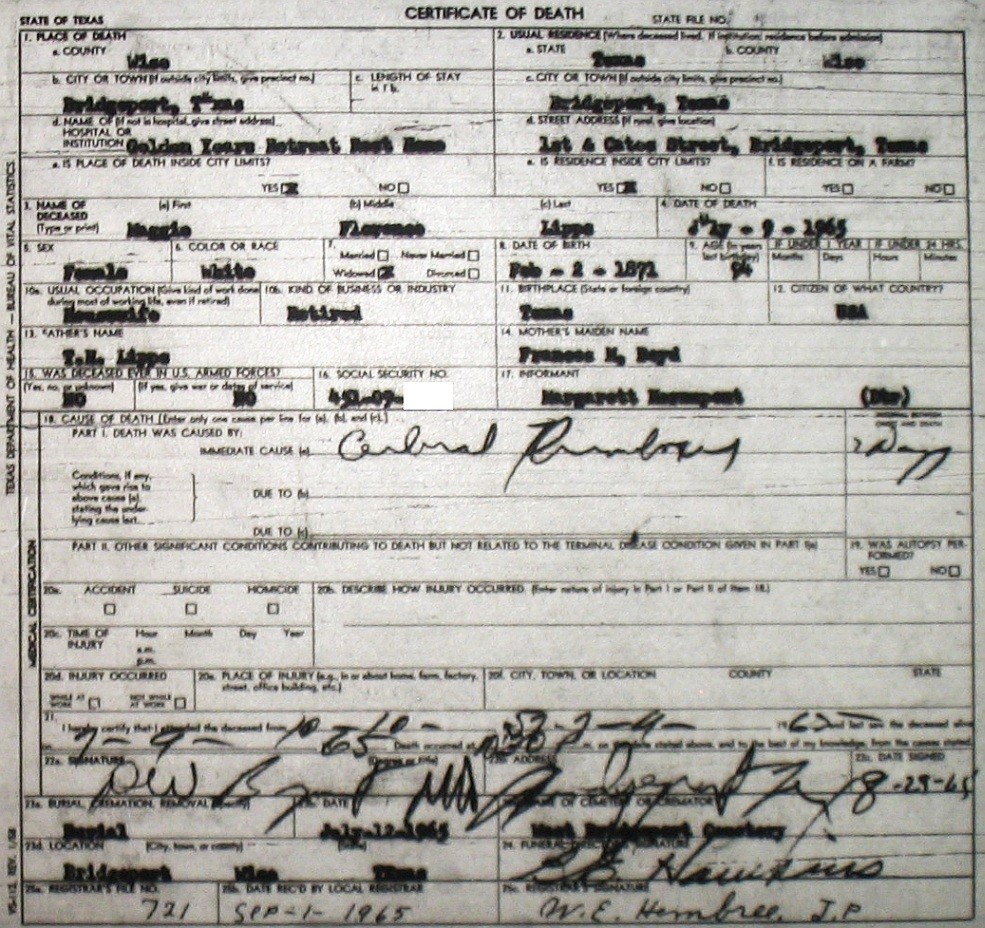 CERTIFICATE OF DEATH
STATE OF TEXAS STATE FILE NO.
1. PLACE OF DEATH
a. COUNTY
Wise
2. USUAL RESIDENCE (Where deceased lived. If institution: residence before admission)
a. STATE b. COUNTY
Texas Wise
b. CITY OR TOWN (If outside city limits, give precinct no.)
Bridgeport, Texas
c. LENGTH OF STAY
in 1 b.
c. CITY OR TOWN (If outside city limits, give precinct no.)
Bridgeport, Texas
d. NAME OF (If not in hospital, give street address)
HOSPITAL OR
INSTITUTION Golden Years Retreat Rest Home
d. STREET ADDRESS (If rural, give location)
1st & Cates Street, Bridgeport, Texas
e. IS PLACE OF DEATH INSIDE CITY LIMITS?
YES NO
e. IS RESIDENCE INSIDE CITY LIMITS?
YES NO
f. IS RESIDENCE ON A FARM?
YES NO
3. NAME OF
DECEASED
(Type or print)
(a) First (b) Middle (c) Last
Maggie Florence Lipps
4. DATE OF DEATH
July - 9 - 1965
5. SEX
Female
6. COLOR OR RACE
White
7.
Married Never Married
Widowed X Divorced
8. DATE OF BIRTH
Feb - 2 - 1871
9. AGE (In years
last birthday)
94
IF UNDER 1 YEAR
Months Days
IF UNDER 24 HRS.
Hours Minutes
10a. USUAL OCCUPATION (Give kind of work done
during most of working life, even if retired)
Housewife
10b. KIND OF BUSINESS OR INDUSTRY
Retired
11. BIRTHPLACE (State or foreign country)
Texas
12. CITIZEN OF WHAT COUNTRY?
USA
13. FATHER'S NAME
T.H. Lipps
14. MOTHER'S MAIDEN NAME
Frances M, Boyd
15. WAS DECEASED EVER IN U.S. ARMED FORCES?
(Yes, no, or unknown) (If yes, give war or dates of service)
NO NO
16. SOCIAL SECURITY NO.
451-07-
17. INFORMANT
Margarett (Dtr)
18. CAUSE OF DEATH [Enter only one cause per line for (a), (b), and (c).]
PART I. DEATH WAS CAUSED BY:
IMMEDIATE CAUSE (a) Cerebral Thrombosis
INTERVAL BETWEEN
ONSET AND DEATH
2 Days
Conditions, if any,
which gave rise to
above cause (a),
stating the under-
lying cause last.
DUE TO (b)
DUE TO (c)
PART II. OTHER SIGNIFICANT CONDITIONS CONTRIBUTING TO DEATH BUT NOT RELATED TO THE TERMINAL DISEASE CONDITION GIVEN IN PART I(a)
19. WAS AUTOPSY PER-
FORMED?
YES NO
20a. ACCIDENT SUICIDE HOMICIDE
20b. DESCRIBE HOW INJURY OCCURRED. (Enter nature of injury in Part I or Part II of Item 18.)
20c. TIME OF
INJURY
Hour Month Day Year
a.m.
p.m.
20d. INJURY OCCURRED
WHILE AT
WORK
NOT WHILE
AT WORK
20e. PLACE OF INJURY (e.g., in or about home, farm, factory,
street, office building, etc.)
20f. CITY, TOWN, OR LOCATION COUNTY STATE
21.
I hereby certify that I attended the deceased from 10-10- 7-9- 1965 and last saw the deceased alive
on 7-9- 65 Death occurred at m. on the date stated above, and to the best of my knowledge, from the causes stated.
22a. SIGNATURE (Degree or title)
MD
22b. ADDRESS
Bridgeport Tex
22c. DATE SIGNED
8-29-65
23a. BURIAL, CREMATION, REMOVAL (Specify)
Burial
23b. DATE
July-12-1965
23c. NAME OF CEMETERY OR CREMATORY
West Bridgeport Cemetery
23d. LOCATION (City, town, or county) (State)
Bridgeport Wise Texas
24. FUNERAL DIRECTOR'S SIGNATURE
Hawkins
25a. REGISTRAR'S FILE NO.
721
25b. DATE REC'D BY LOCAL REGISTRAR
SEP-1-1965
25c. REGISTRAR'S SIGNATURE
W.E. Hembree, J.P
TEXAS DEPARTMENT OF HEALTH — BUREAU OF VITAL STATISTICS
MEDICAL CERTIFICATION
VS-112, REV. 1/58